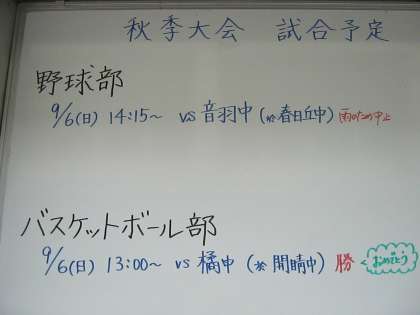 秋季大会 試合予定
野球部
9/6(日) 14:15～ vs 音羽中 (於 春日丘中) 雨のため中止
バスケットボール部
9/6(日) 13:00～ vs 橘中 (於 開晴中) 勝 おめでとう